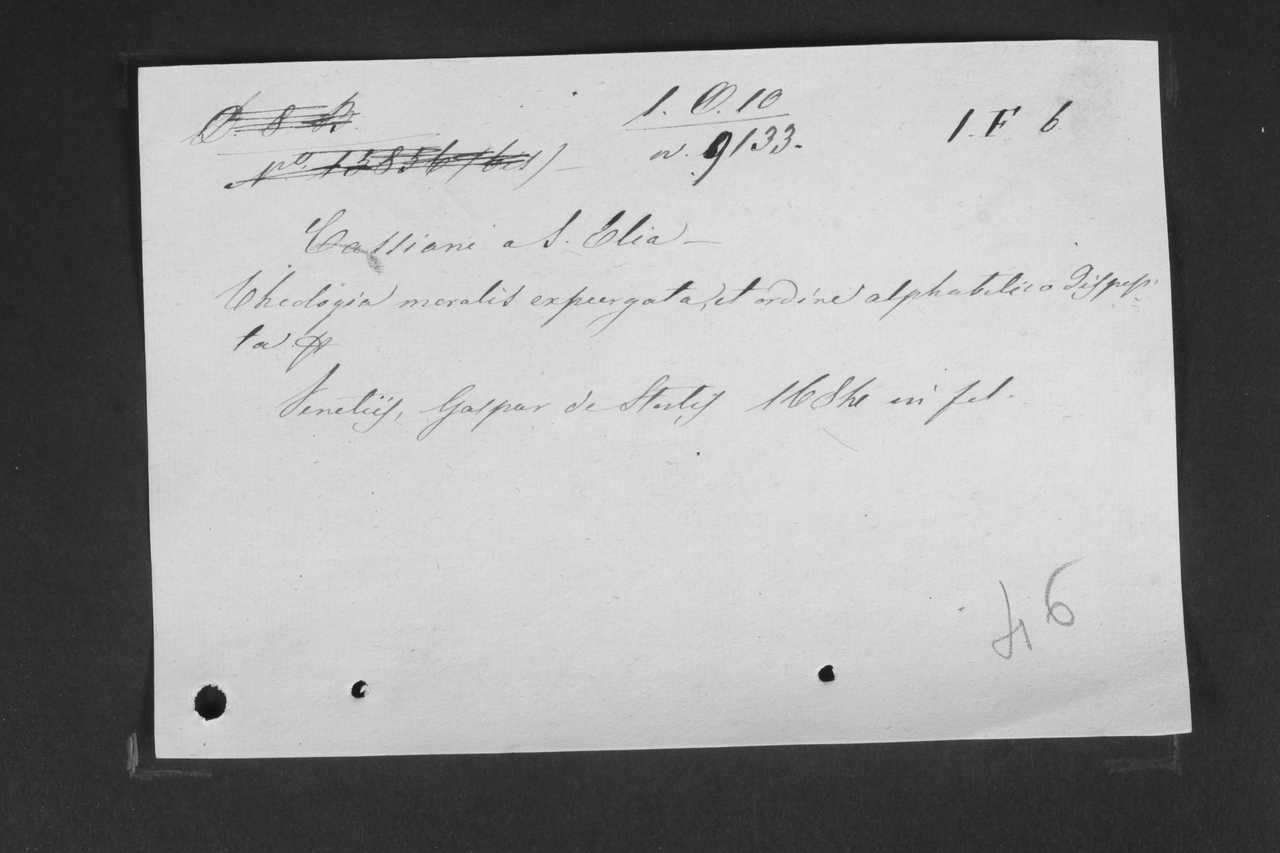 D. 8. B. 1. D. 10 1. F 6
Nº 15856 (bis) n. 9133.
Cassiani a S. Elia
Theologia moralis expurgata, et ordine alphabetico dispos-
ta
Venetiis, Gaspar de Stortis in fol.
46